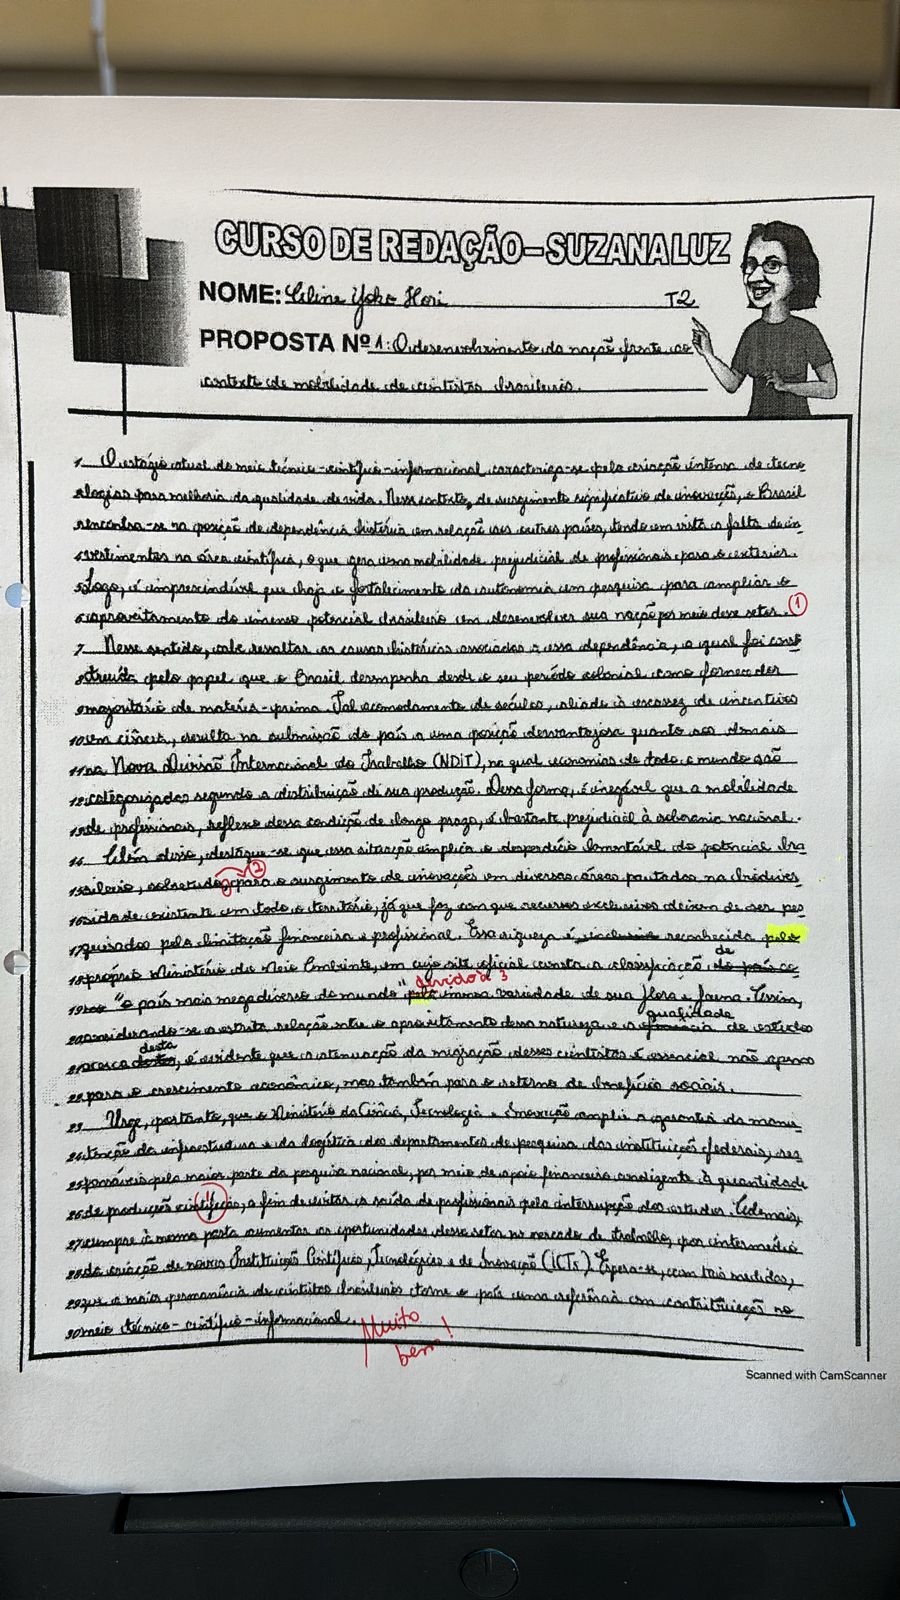 CURSO DE REDAÇÃO-SUZANA LUZ
NOME: Celine Yoko Hori T2
PROPOSTA Nº 1: O desenvolvimento da nação frente ao
contexto de mobilidade de cientistas brasileiros.
1 O estágio atual do meio técnico-científico-informacional caracteriza-se pela criação intensa de tecno
2 logias para melhoria da qualidade de vida. Nesse contexto, de surgimento significativo de inovação, o Brasil
3 encontra-se na posição de dependência histórica em relação aos outros países, tendo em vista a falta de in
4 vestimentos na área científica, o que gera uma mobilidade prejudicial de profissionais para o exterior.
5 Logo, é imprescindível que haja o fortalecimento da autonomia em pesquisa para ampliar o
6 aproveitamento do imenso potencial brasileiro em desenvolver sua nação por meio desse setor. 1
7 Nesse sentido, cabe ressaltar as causas históricas associadas a essa dependência, a qual foi cons
8 truída pelo papel que o Brasil desempenha desde o seu período colonial como fornecedor
9 majoritário de matéria-prima. Tal acomodamento de séculos, aliado à escassez de incentivo
10 em ciência, resulta na submissão do país a uma posição desvantajosa quanto aos demais
11 na Nova Divisão Internacional do Trabalho (NDIT), na qual economias de todo o mundo são
12 categorizadas segundo a distribuição de sua produção. Dessa forma, é inegável que a mobilidade
13 de profissionais, reflexo dessa condição de longo prazo, é bastante prejudicial à soberania nacional.
14 Além disso, destaque-se que essa situação implica o desperdício lamentável do potencial bra
15 sileiro, sobretudo para o surgimento de inovações em diversas áreas pautadas na biodiver 2
16 sidade existente em todo o território, já que faz com que recursos exclusivos deixem de ser pes
17 quisados pela limitação financeira e profissional. Essa riqueza é reconhecida pelo
18 próprio Ministério do Meio Ambiente, em cujo site oficial consta a classificação de
19 "o país mais megadiverso do mundo" devido à 3 imensa variedade de sua flora e fauna. Assim,
20 considerando-se a estrita relação entre o aproveitamento dessa natureza e a qualidade de estudos
21 acerca desta, é evidente que a atenuação da migração desses cientistas é essencial não apenas
22 para o crescimento econômico, mas também para o retorno de benefício sociais.
23 Urge, portanto, que o Ministério da Ciência, Tecnologia e Inovação amplie a garantia da manu
24 tenção da infraestrutura e da logística dos departamentos de pesquisa das instituições federais, res
25 ponsáveis pela maior parte da pesquisa nacional, por meio de apoio financeiro condizente à quantidade
26 de produção a fim de evitar a saída de profissionais pela interrupção dos estudos. Ademais,
27 cumpre à mesma pasta aumentar as oportunidades desse setor no mercado de trabalho, por intermédio
28 da criação de novas Instituição Científica, Tecnológica e de Inovação (ICTs). Espera-se, com tais medidas,
29 que a maior permanência de cientistas brasileiros torne o país uma referência com contribuição no
30 meio técnico-científico-informacional.
Muito
bem!
Scanned with CamScanner